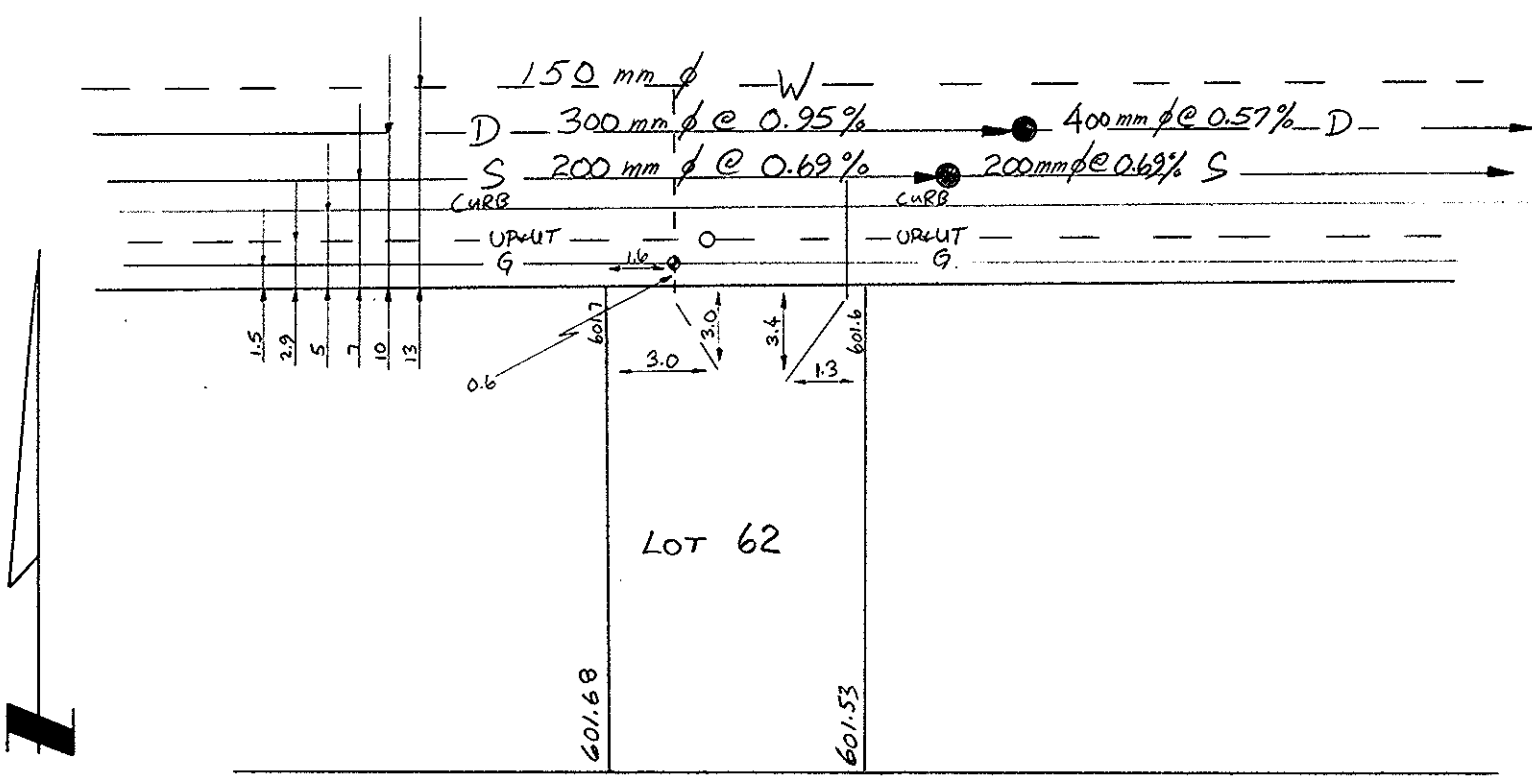 150 mm ∅ W
D 300 mm ∅ @ 0.95% 400 mm ∅ @ 0.57% D
S 200 mm ∅ @ 0.69% 200 mm ∅ @ 0.69% S
CURB CURB
UP&UT UP&UT
G 1.6 G.
1.5
2.9
5
7
10
13
0.6
601.7
3.0
3.0
3.4
1.3
601.6
LOT 62
601.68
601.53